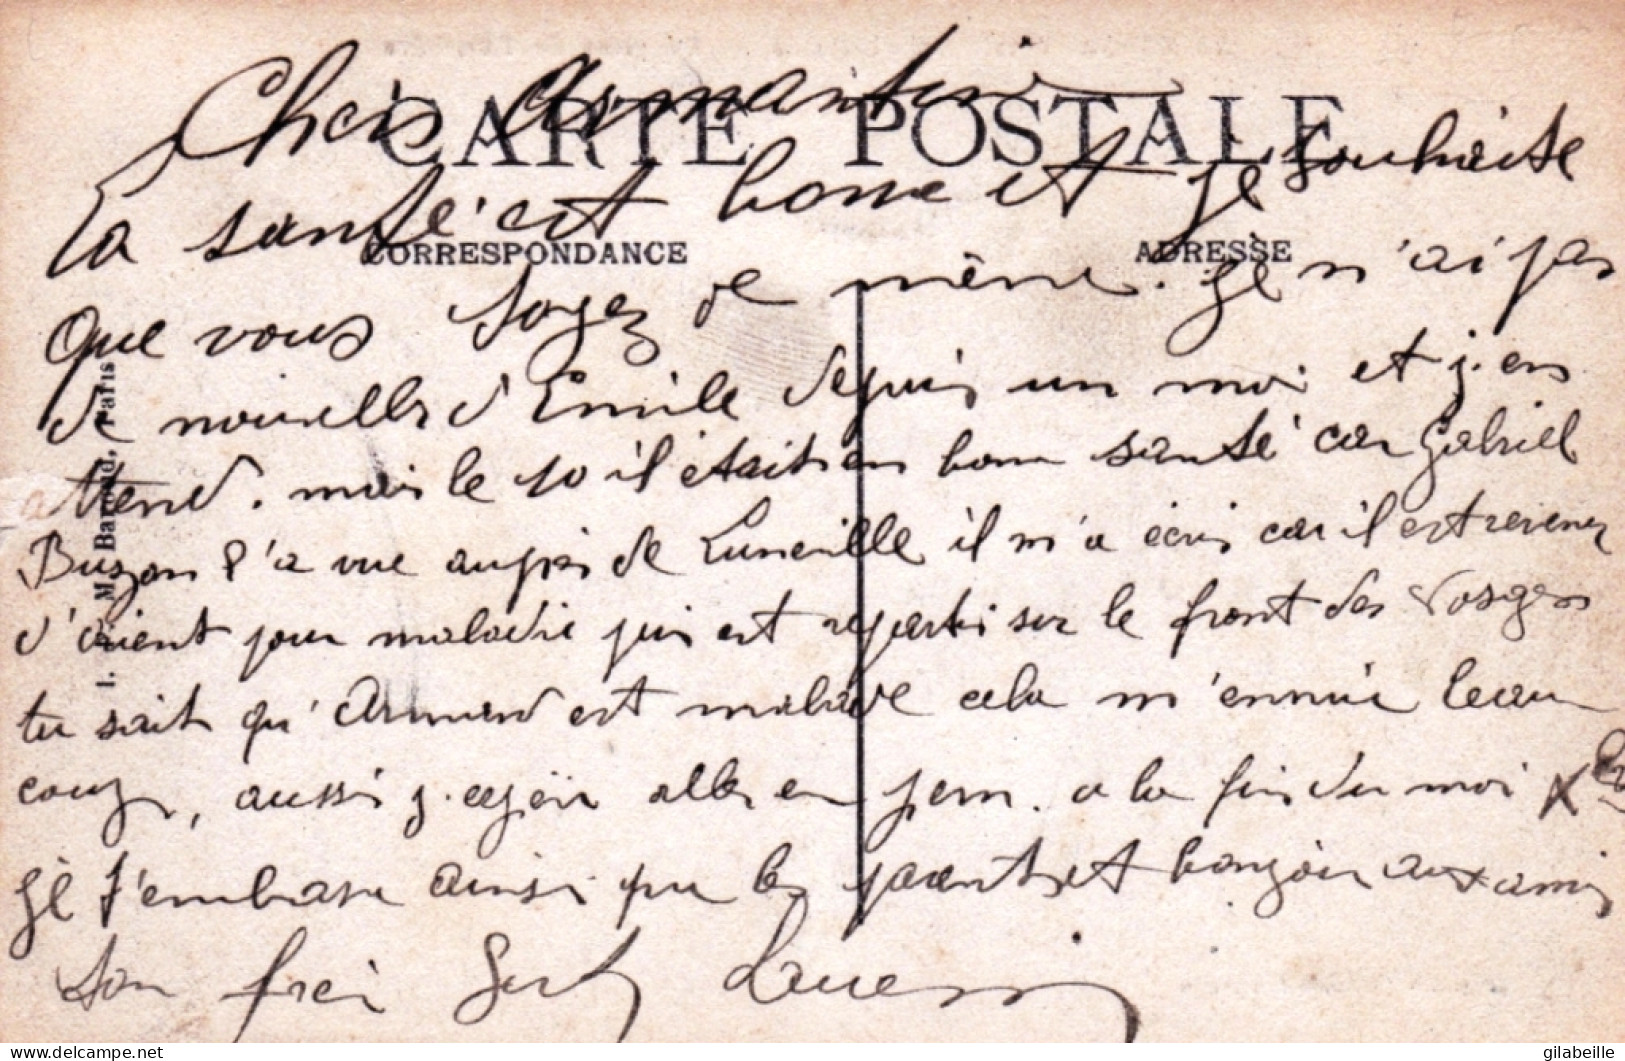 CARTE POSTALE
CORRESPONDANCE
ADRESSE
Paris
la santé est bonne et je souhaite
que vous soyez de même. je n'ai pas
de nouvelles d'Emile depuis un moi et j'en
attend. mais le 10 il était en bonne santé car Gabriel
Buzon l'a vue auprès de Luneville il m'a écris car il est revenu
d'orient pour maladie puis est reparti sur le front des Vosges
tu sait qu' Armand est malade cela m'ennui beau
coup, aussi j. aller en perm. a la fin du moi X
je t'embrasse ainsi que les parents et bonjour aux amis
ton frère
delcampe.net
gilabeille